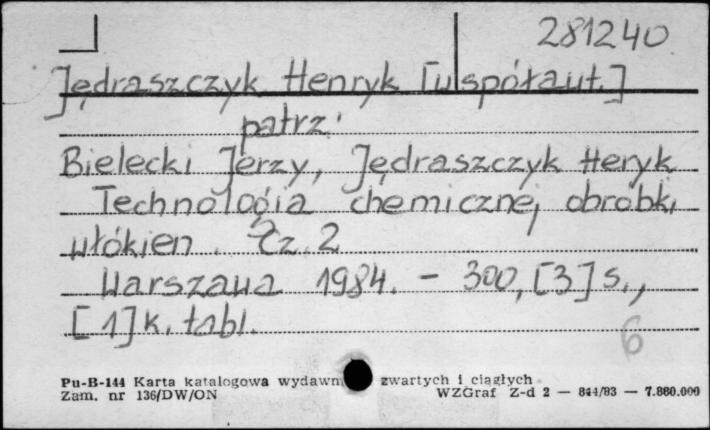 281240
Jędraszczyk Henryk [współaut.]
patrz:
Bielecki Jerzy, Jędraszczyk Heryk
Technologia chemicznej obróbki
włókien. Cz. 2
Warszawa 1984. - 300, [3] s.,
[1] k. tabl.
6
Pu-B-144 Karta katalogowa wydawn zwartych i ciągłych
Zam. nr 136/DW/ON WZGraf Z-d 2 — 844/83 — 7.880.000